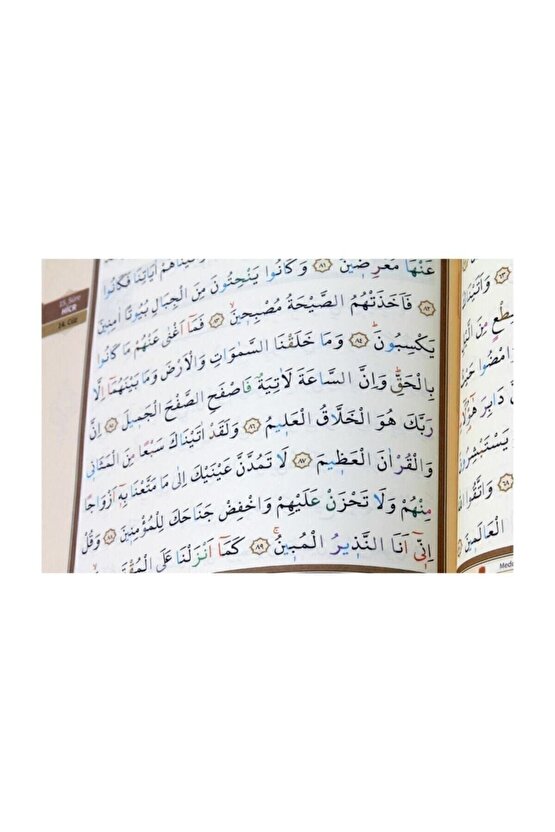 15. Sûre
HİCR
14. Cüz
عَنْهَا مُعْرِضِينَ ﴿٨١﴾ وَكَانُوا يَنْحِتُونَ مِنَ الْجِبَالِ بُيُوتًا اٰمِنِينَ
اٰيَاتِنَا فَكَانُوا
﴿٨٢﴾ فَاَخَذَتْهُمُ الصَّيْحَةُ مُصْبِحِينَ ﴿٨٣﴾ فَمَٓا اَغْنٰى عَنْهُمْ مَا كَانُوا
يَكْسِبُونَ ﴿٨٤﴾ وَمَا خَلَقْنَا السَّمٰوَاتِ وَالْاَرْضَ وَمَا بَيْنَهُمَٓا اِلَّا
بِالْحَقِّ وَاِنَّ السَّاعَةَ لَاٰتِيَةٌ فَاصْفَحِ الصَّفْحَ الْجَمِيلَ ﴿٨٥﴾ اِنَّ
رَبَّكَ هُوَ الْخَلَّاقُ الْعَلِيمُ ﴿٨٦﴾ وَلَقَدْ اٰتَيْنَاكَ سَبْعًا مِنَ الْمَثَانِي
وَالْقُرْاٰنَ الْعَظِيمَ ﴿٨٧﴾ لَا تَمُدَّنَّ عَيْنَيْكَ اِلٰى مَا مَتَّعْنَا بِهٖٓ اَزْوَاجًا
مِنْهُمْ وَلَا تَحْزَنْ عَلَيْهِمْ وَاخْفِضْ جَنَاحَكَ لِلْمُؤْمِنِينَ ﴿٨٨﴾ وَقُلْ
اِنِّٓي اَنَا النَّذِيرُ الْمُبِينُ ﴿٨٩﴾ كَمَٓا اَنْزَلْنَا عَلَى
يَسْتَبْشِرُونَ
وَاتَّقُوا اللّٰهَ
الْعَالَمِينَ